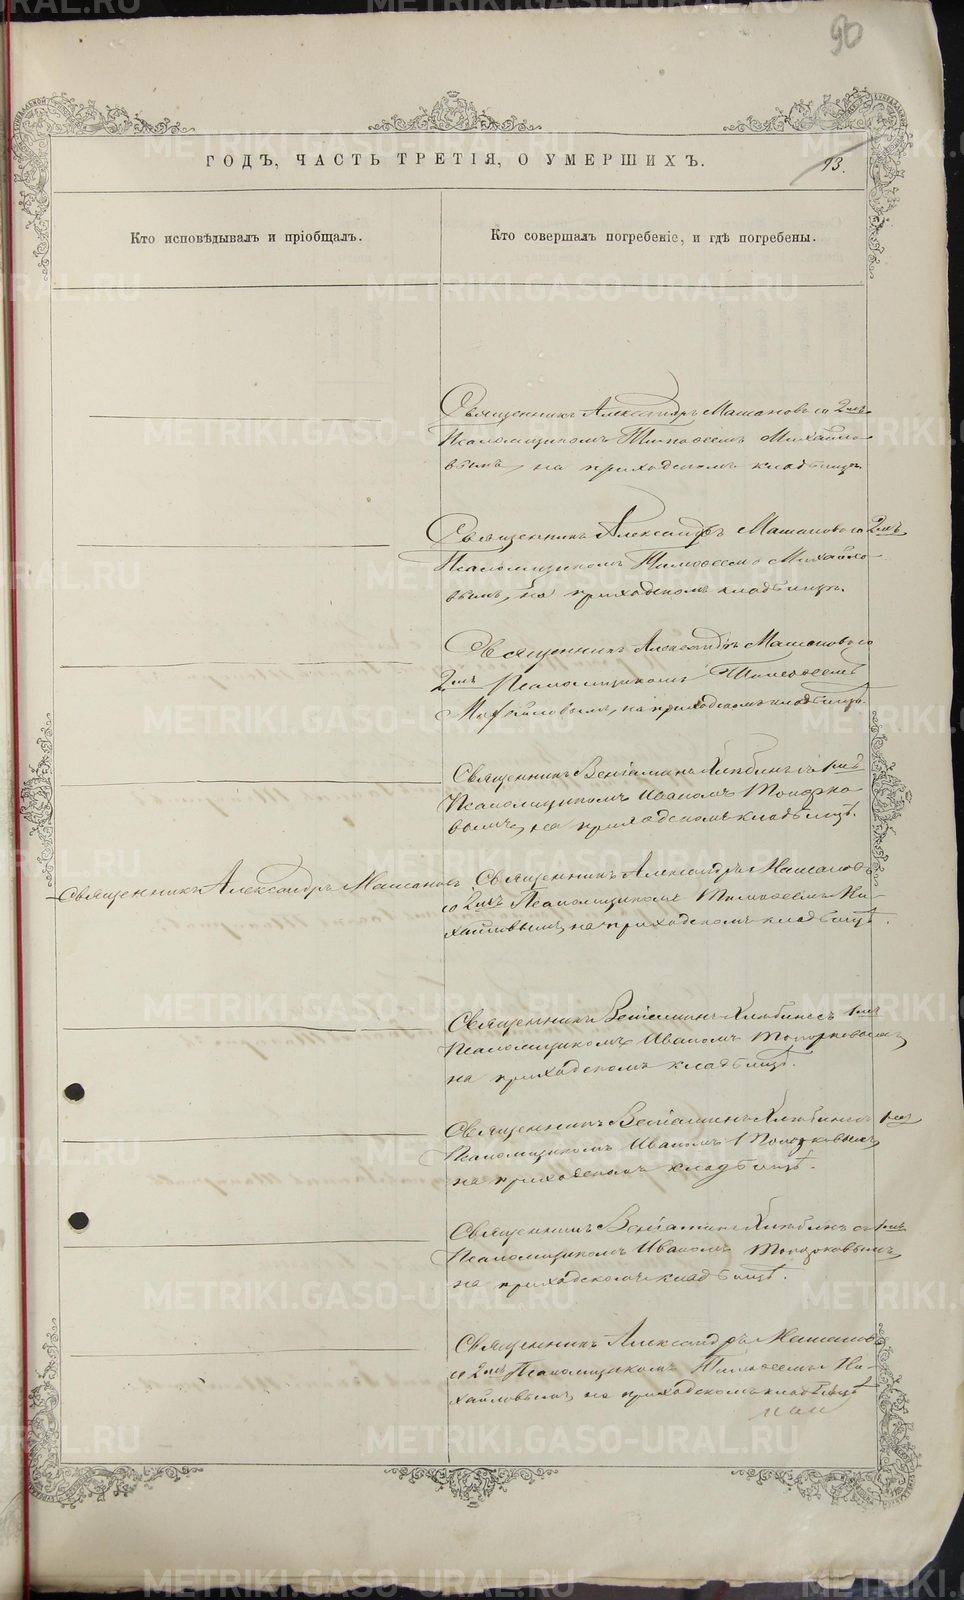 90
ГОДЪ, ЧАСТЬ ТРЕТІЯ, О УМЕРШИХЪ.
13.
Кто исповѣдывалъ и пріобщалъ.
Кто совершалъ погребеніе, и гдѣ погребены.
Священникъ Александръ Машановъ со 2мъ
Псаломщикомъ Тимофеемъ Михайло-
вымъ, на приходскомъ кладбищѣ.
Священникъ Александръ Машановъ со 2мъ
Псаломщикомъ Тимофеемъ Михайло-
вымъ, на приходскомъ кладбищѣ.
Священникъ Александръ Машановъ со
2мъ Псаломщикомъ Тимофеемъ
Михайловымъ, на приходскомъ кладбищѣ.
Священникъ Веніаминъ съ 1мъ
Псаломщикомъ Иваномъ Топорко-
вымъ, на приходскомъ кладбищѣ.
Священникъ Александръ Машановъ.
Священникъ Александръ Машановъ
со 2мъ Псаломщикомъ Тимофеемъ Ми-
хайловымъ, на приходскомъ кладбищѣ.
Священникъ Веніаминъ съ 1мъ
Псаломщикомъ Иваномъ Топорковымъ,
на приходскомъ кладбищѣ.
Священникъ Веніаминъ съ 1мъ
Псаломщикомъ Иваномъ Топорковымъ,
на приходскомъ кладбищѣ.
Священникъ Веніаминъ съ 1мъ
Псаломщикомъ Иваномъ Топорковымъ,
на приходскомъ кладбищѣ.
Священникъ Александръ Машановъ
со 2мъ Псаломщикомъ Тимофеемъ Ми-
хайловымъ, на приходскомъ кладбищѣ
METRIKI.GASO-URAL.RU